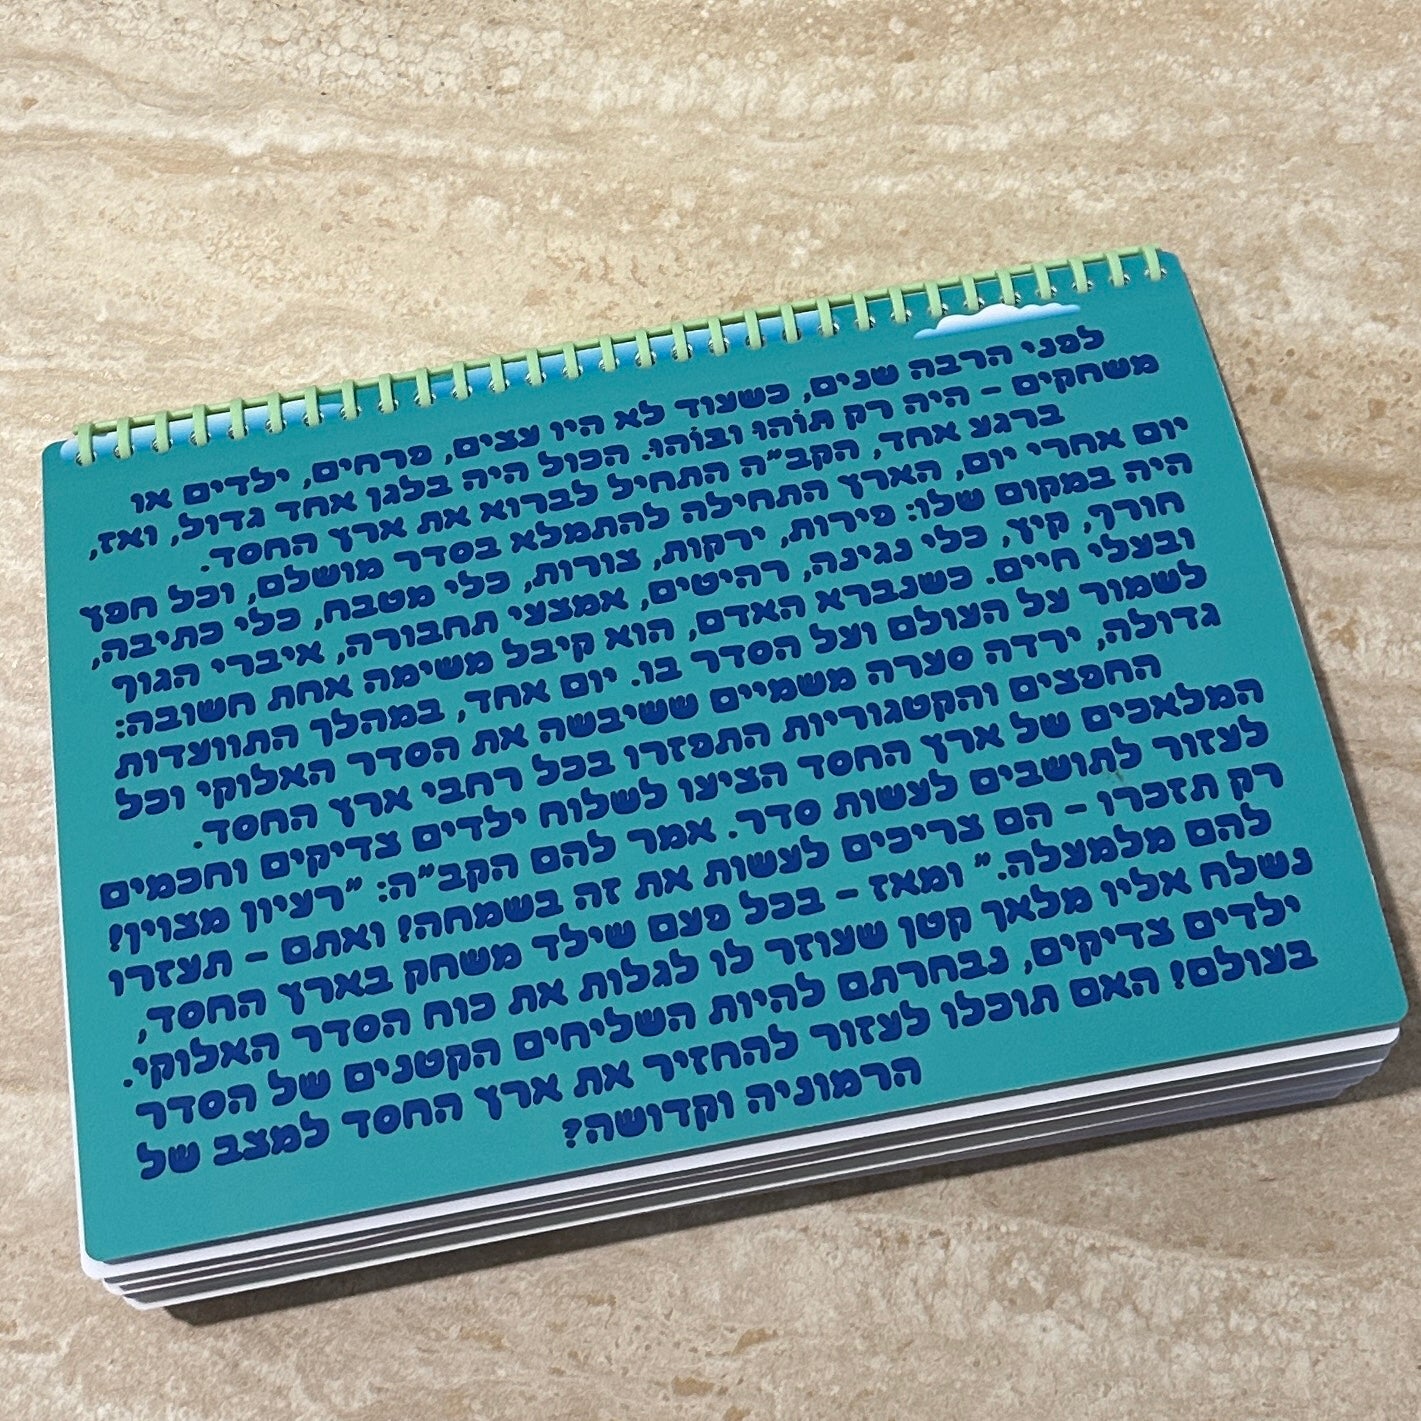 לפני הרבה שנים, כשעוד לא היו עצים, פרחים, ילדים או
משחקים - היה רק תוֹהוּ ובוֹהוּ. הכול היה בלגן אחד גדול, ואז,
ברגע אחד, הקב"ה התחיל לברוא את ארץ החסד.
יום אחרי יום, הארץ התחילה להתמלא בסדר מושלם, וכל חפץ
היה במקום שלו: פירות, ירקות, צורות, כלי מטבח, כלי כתיבה,
חורף, קיץ, כלי נגינה, רהיטים, אמצעי תחבורה, איברי הגוף
ובעלי חיים. כשנברא האדם, הוא קיבל משימה אחת חשובה:
לשמור על העולם ועל הסדר בו. יום אחד, במהלך התוועדות
גדולה, ירדה סערה משמיים ששיבשה את הסדר האלוקי וכל
החפצים והקטגוריות התפזרו בכל רחבי ארץ החסד.
המלאכים של ארץ החסד הציעו לשלוח ילדים צדיקים וחכמים
לעזור לתושבים לעשות סדר. אמר להם הקב"ה: "רעיון מצוין!
רק תזכרו - הם צריכים לעשות את זה בשמחה! ואתם - תעזרו
להם מלמעלה." ומאז - בכל פעם שילד משחק בארץ החסד,
נשלח אליו מלאך קטן שעוזר לו לגלות את כוח הסדר האלוקי.
ילדים צדיקים, נבחרתם להיות השליחים הקטנים של הסדר
בעולם! האם תוכלו לעזור להחזיר את ארץ החסד למצב של
הרמוניה וקדושה?